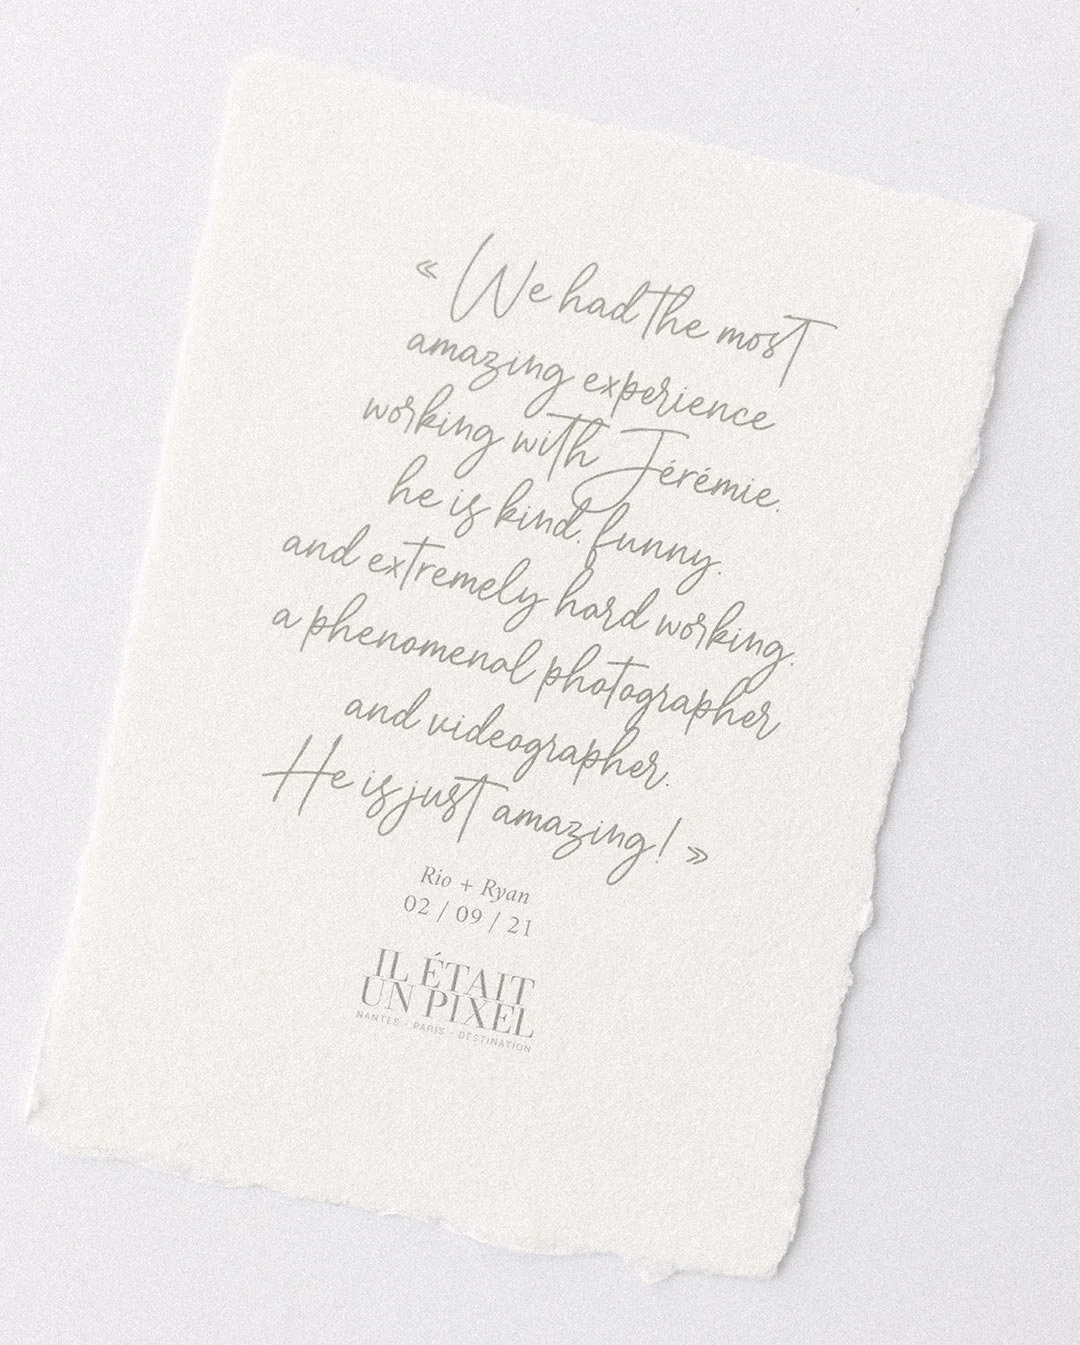 « We had the most
amazing experience
working with Jérémie.
he is kind. funny.
and extremely hard working.
a phenomenal photographer
and videographer.
He is just amazing! »
Rio + Ryan
02 / 09 / 21
IL ÉTAIT
UN PIXEL
NANTES - PARIS - DESTINATION